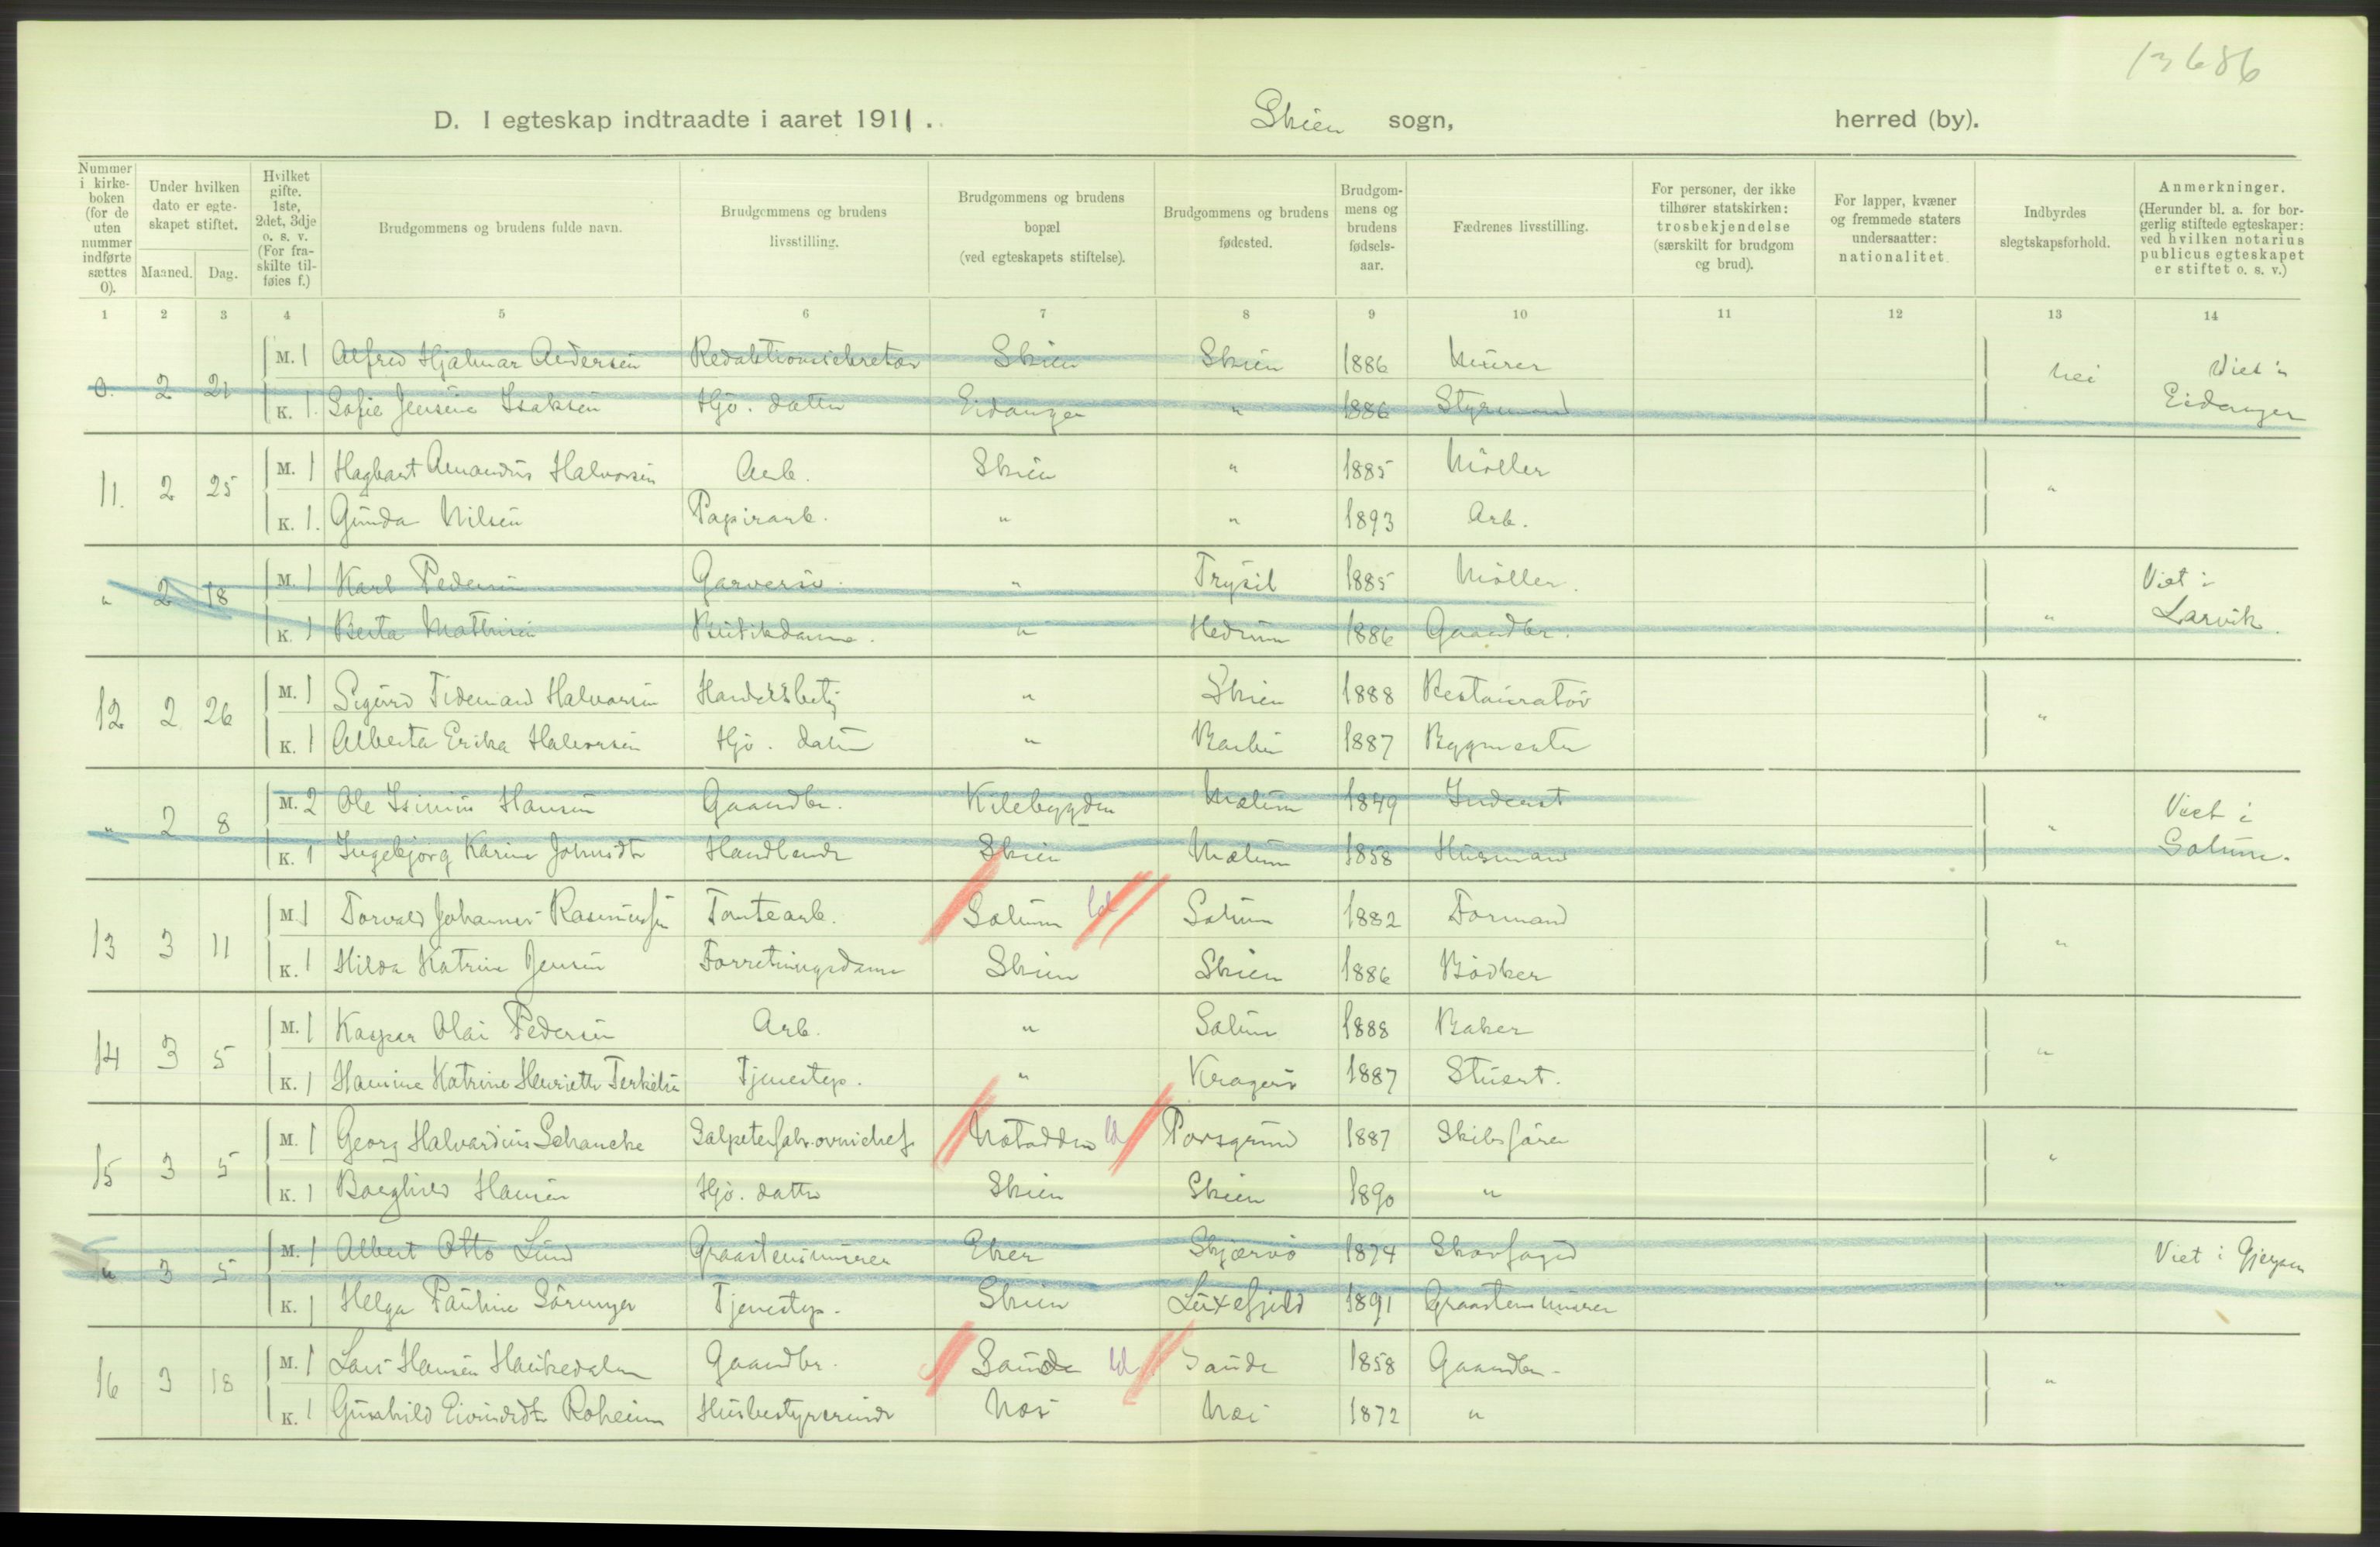 13686
D. I egteskap indtraadte i aaret 1911. Skien sogn, herred (by).
Nummer i kirkeboken (for de uten nummer indførte sættes 0).
Under hvilken dato er egteskapet stiftet.
Maaned. Dag.
Hvilket gifte. 1ste, 2det, 3dje o. s. v. (For fraskilte tilføies f.)
Brudgommens og brudens fulde navn.
Brudgommens og brudens livsstilling.
Brudgommens og brudens bopæl (ved egteskapets stiftelse).
Brudgommens og brudens fødested.
Brudgommens og brudens fødselsaar.
Fædrenes livsstilling.
For personer, der ikke tilhører statskirken: trosbekjendelse (særskilt for brudgom og brud).
For lapper, kvæner og fremmede staters undersaatter: nationalitet.
Indbyrdes slegtskapsforhold.
Anmerkninger. (Herunder bl. a. for borgerlig stiftede egteskaper: ved hvilken notarius publicus egteskapet er stiftet o. s. v.)
1 2 3 4 5 6 7 8 9 10 11 12 13 14
0. 2 21 M. 1 Alfred Hjalmar Andersen Redaktionssekretær Skien Skien 1886 Murer nei Viet i Eidanger
K. 1. Sofie Jensine Isaksen Hjv. datter Eidanger " 1886 Styrmand
11. 2 25 M. 1 Hagbart Amandus Halvorsen Arb. Skien " 1885 Møller "
K. 1. Gunda Nilsen Papirarb. " " 1893 Arb.
" 2 18 M. 1 Karl Pedersen Garversv. " Trysil 1885 Møller. " Viet i Larvik.
K. 1 Berta Mathisen Butikdame. " Hedrum 1886 Gaardbr.
12 2 26 M. 1 Sigurd Tidemand Halvorsen Handelsbetj " Skien 1888 Restauratør "
K. 1 Alberta Erika Halvorsen Hjv. datter " Barbu 1887 Bygmester
" 2 8 M. 2 Ole Isinius Hansen Gaardbr. Kilebygden Mælum 1849 Inderst " Viet i Solum.
K. 1 Ingebjørg Karine Johnsdtr Handlende Skien Mælum 1858 Husmand
13 3 11 M. 1 Torvald Johannes Rasmussen Tomtearb. Solum ld Solum 1882 Formand "
K. 1 Hilda Katrine Jensen Forretningsdame Skien Skien 1886 Bødker
14 3 5 M. 1 Kasper Olai Pedersen Arb. " Solum 1888 Baker "
K. 1 Hamine Katrine Henriette Terkelsen Tjenestep. " Kragerø 1887 Stuert.
15 3 5 M. 1 Georg Halvardius Schancke Salpeterfabr.ovnschef Notodden ld Porsgrund 1887 Skibsfører "
K. 1 Borghild Hansen Hjv. datter Skien Skien 1890 "
" 3 5 M. 1 Albert Otto Lund Graastensmurer Eker Skjærvø 1874 Skovfoged " Viet i Gjerpen
K. 1 Helga Pauline Sørunger Tjenestep. Skien Luxefjeld 1891 Graastensmurer
16 3 18 M. 1 Lars Hansen Haukedalen Gaardbr. Saude ld Saude 1858 Gaardbr. "
K. 1 Gunhild Eivindsdtr Roheim Husbestyrerinde Næs Næs 1872 "